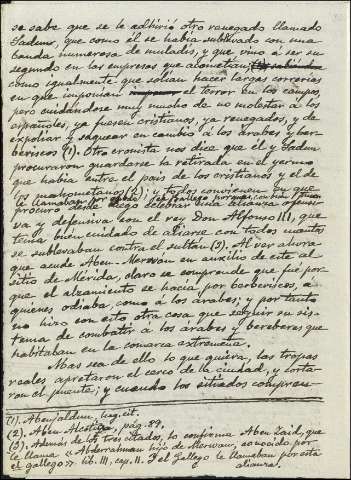 se sabe que se le adhirió otro renegado llamado
Sadum, que como él se había sublevado con una
banda numerosa de muladís, y que vino á ser su
segundo en las empresas que acometían;
como igualmente que solían hacer largas correrías
en que imponían el terror en los campos,
pero cuidándose muy mucho de no molestar á los
españoles, ya fuesen cristianos, ya renegados, y de
expoliar y saquear en cambio á los árabes y ber-
beriscos (1). Otro cronista nos dice que él y Sadum
procuraron guardarse la retirada en el yermo
que había entre el país de los cristianos y el de
los mahometanos (2); y todos convienen en que
le llamaban por
procuró desde luego celebrar una alianza ofensi-
va y defensiva con el rey Don Alfonso III, que
tenía buen cuidado de aliarse con todos cuantos
se sublevaban contra el sultán (3). Al ver ahora
que acude Aben-Merwan en auxilio de este al
sitio de Mérida, claro se comprende que fué por-
que el alzamiento se hacía por berberiscos, á
quienes odiaba, como á los árabes; y por tanto
no hizo con esto otra cosa que seguir su sis-
tema de combatir á los árabes y bereberes que
habitaban en la comarca extremeña.
Mas sea de ello lo que quiera, las tropas
reales apretaron el cerco de la ciudad, y corta-
ron el puente; y cuando los sitiados compren-
(1). Abenjaldun, lug. cit.
(2). Aben pág. 89.
(3). Además de los tres citados, lo confirma Aben Zaid, que
le llama « Abderraman hijo de Merwan, conocido por
el gallego». lib. III, cap. 11. Y el Gallego le llamaban por esta
alianza.